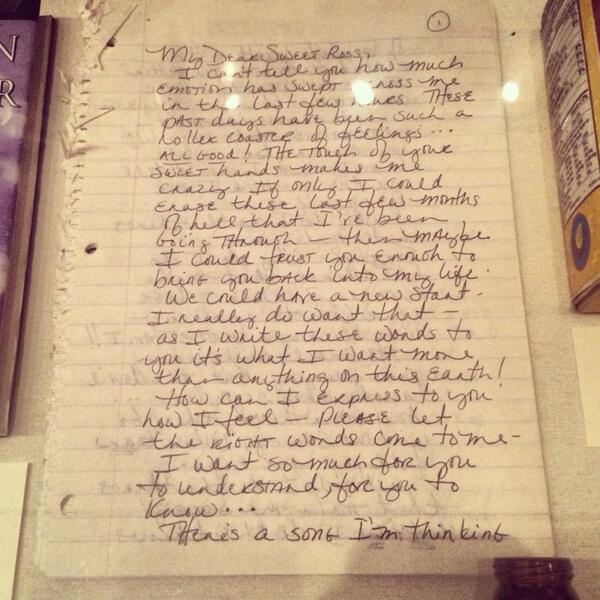 ①
N
R
My Dear Sweet Ross,
I can't tell you how much
emotion has swept across me
in the last few hours. These
past days have been such a
roller coaster of feelings...
ALL GOOD! The touch of your
sweet hands makes me
crazy. If only I could
erase these last few months
of hell that I've been
going through — then maybe
I could trust you enough to
bring you back into my life.
We could have a new start -
I really do want that —
as I write these words to
you it's what I want more
than anything on this Earth!
How can I express to you
how I feel — PLEASE let
the RIGHT words come to me -
I want so much for you
to understand, for you to
know...
There's a song I'm thinking